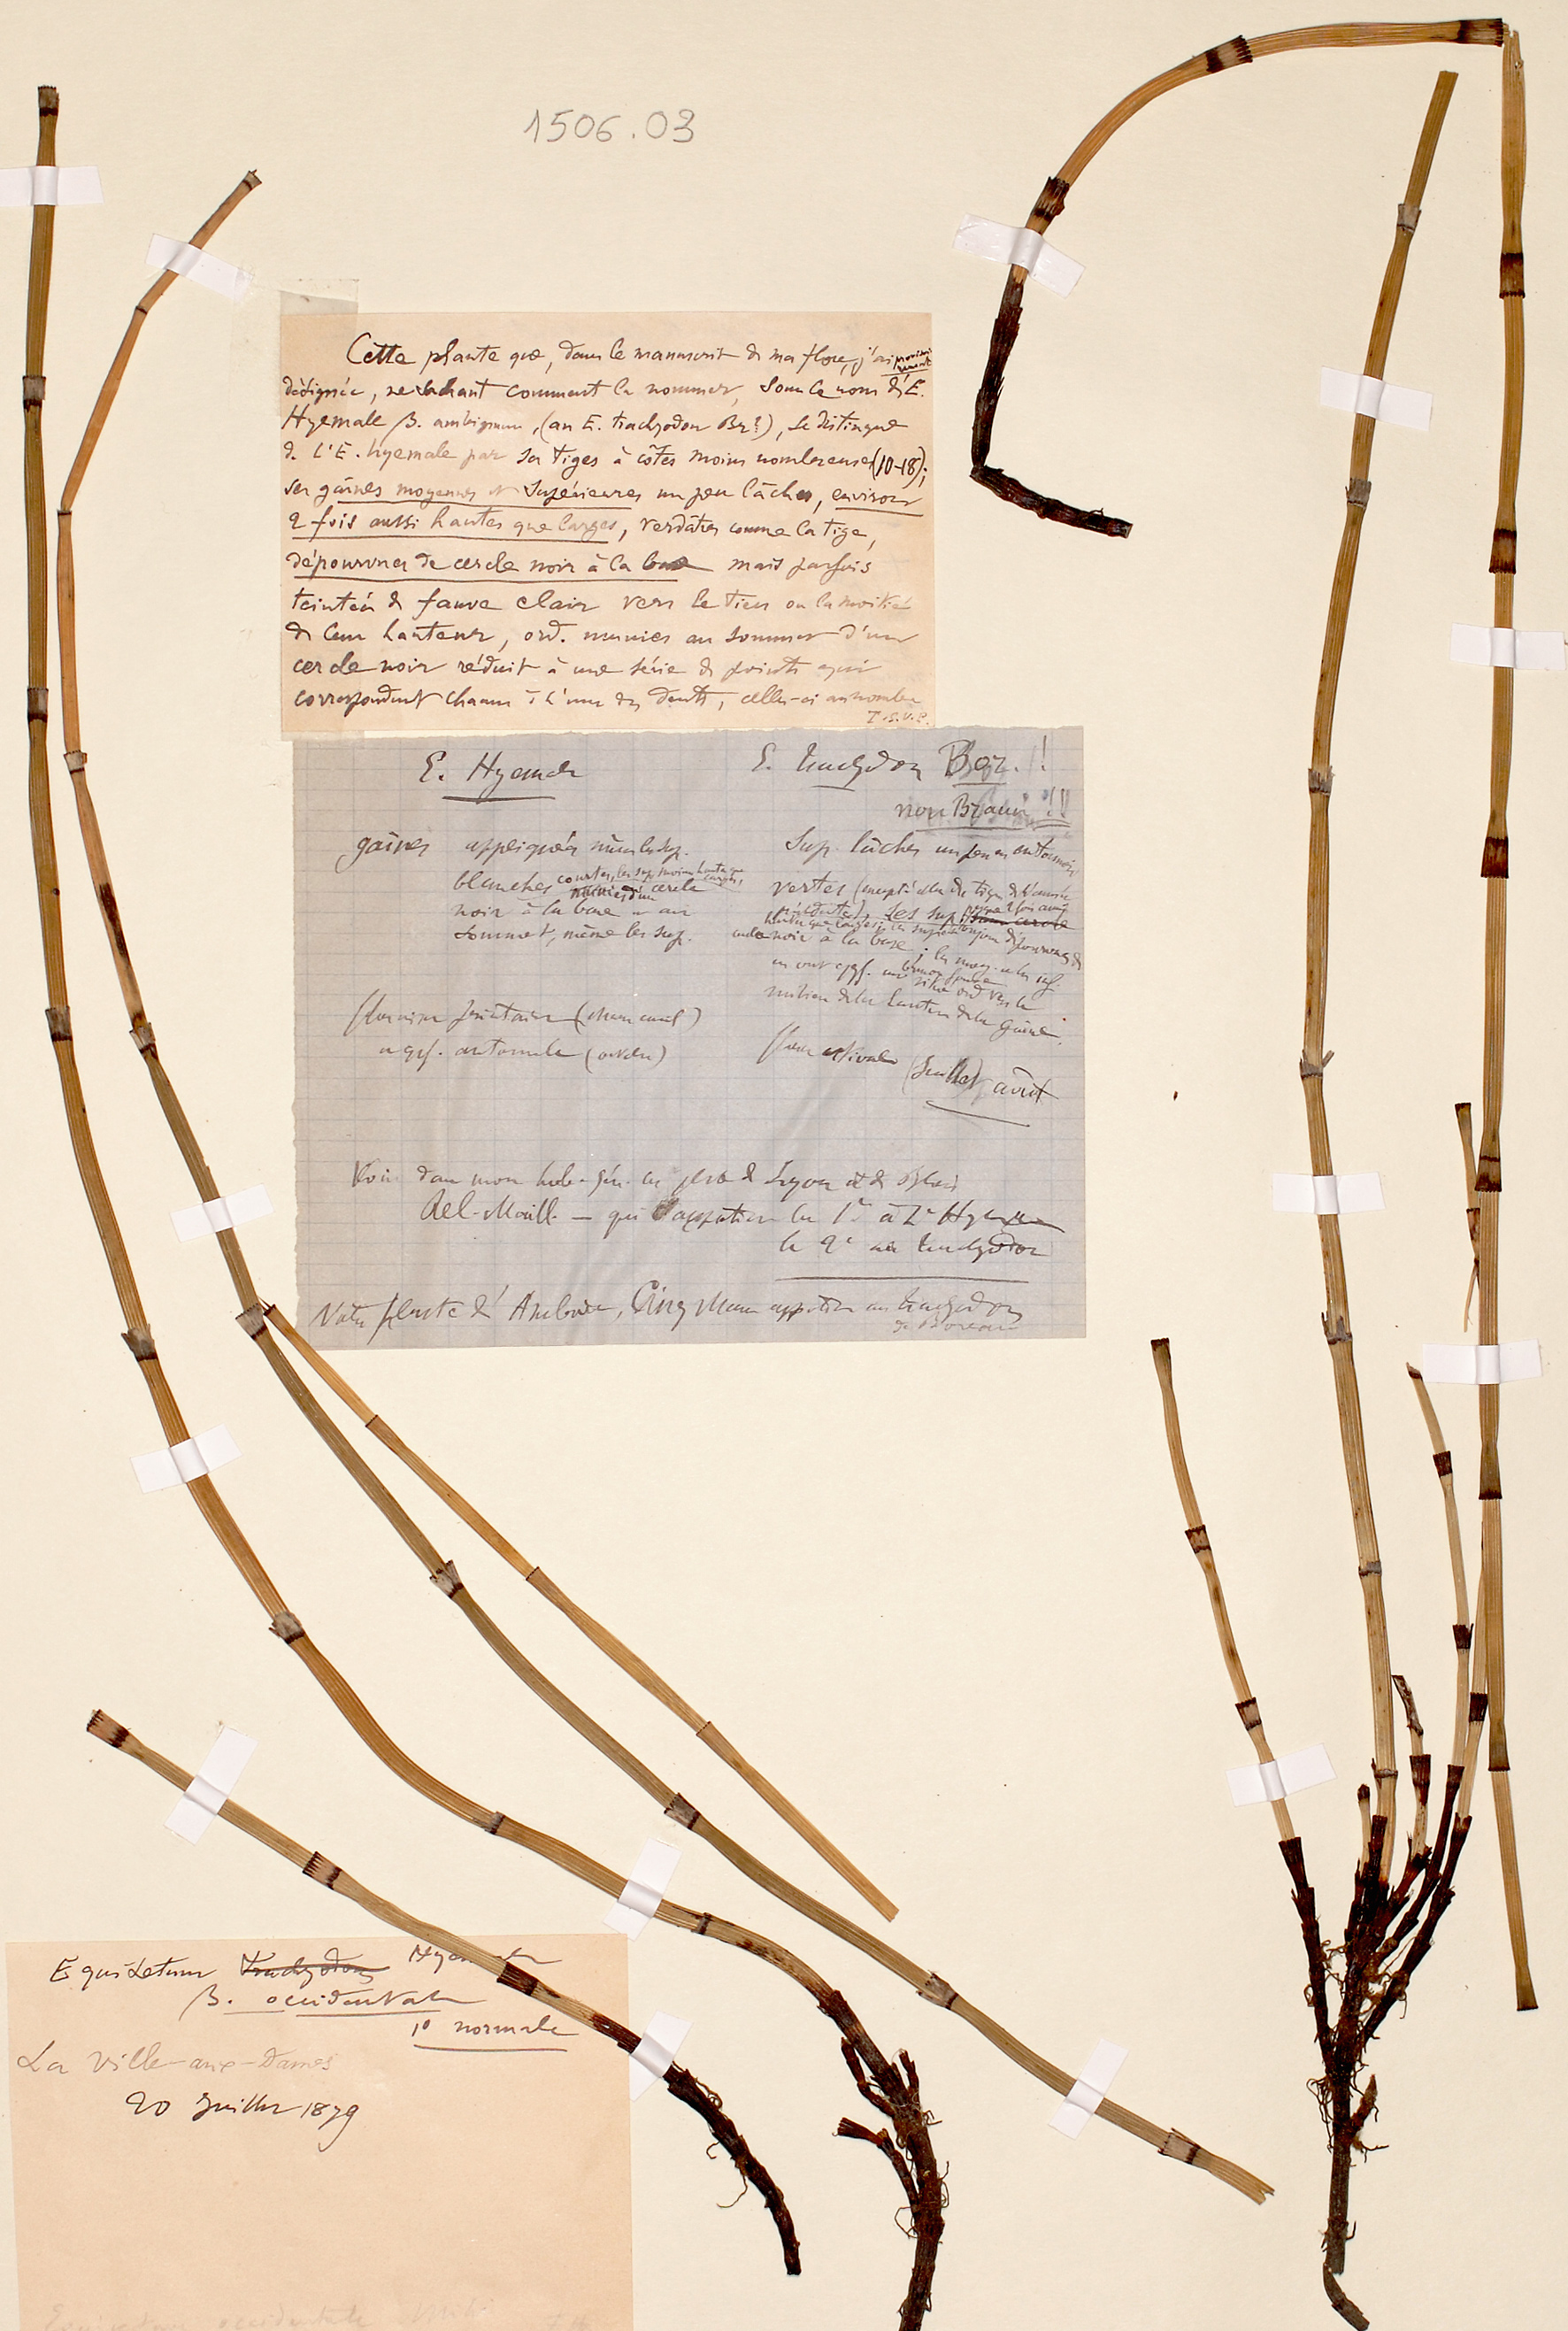 1506.03
Cette plante que, dans le manuscrit de ma flore, j'ai provisoirement
désignée, ne sachant comment la nommer, sous le nom d'E.
Hyemale β. ambiguum, (an E. trachyodon Br?), se distingue
de l'E. hyemale par ses tiges à côtes moins nombreuses (10-18);
ses gaînes moyennes et supérieures un peu lâches, environ
2 fois aussi hautes que larges, verdâtres comme la tige,
dépourvues de cercle noir à la base mais parfois
teintées de fauve clair vers le tiers ou la moitié
de leur hauteur, ord. munies au sommet d'un
cercle noir réduit à une série de points qui
correspondent chacun à l'une des dents, celles-ci au nombre
T.S.V.P.
E. Hyemale
E. trachyodon Bor.!
non Braun!!!
gaînes appliquées même les sup.
blanches courtes, les sup. moins hautes que larges,
munies d'un cercle
noir à la base et au
sommet, même les sup.
Sup. lâches un peu en entonnoir
vertes (excepté celles des tiges de l'année
précédente), les sup.
noir à la base; les moy. et les inf.
en ont qqf. une
milieu de la hauteur de la gaîne.
floraison printanière
et qqf. automnale
flor. estivale (Juillet, août
Voir dans mon herb. gén. les pl. de Lyon et de Blois
Del. Maill. — qui appartien la 1re à l'Hyemale
la 2e au trachyodon
Notre plante d'Amboise, Cinq Mars appartien au trachyodon
de Boreau
Equisetum trachyodon Hyemale
β. occidentale
1° normale
La Ville-aux-Dames
20 Juillet 1879
Equisetum occidentale